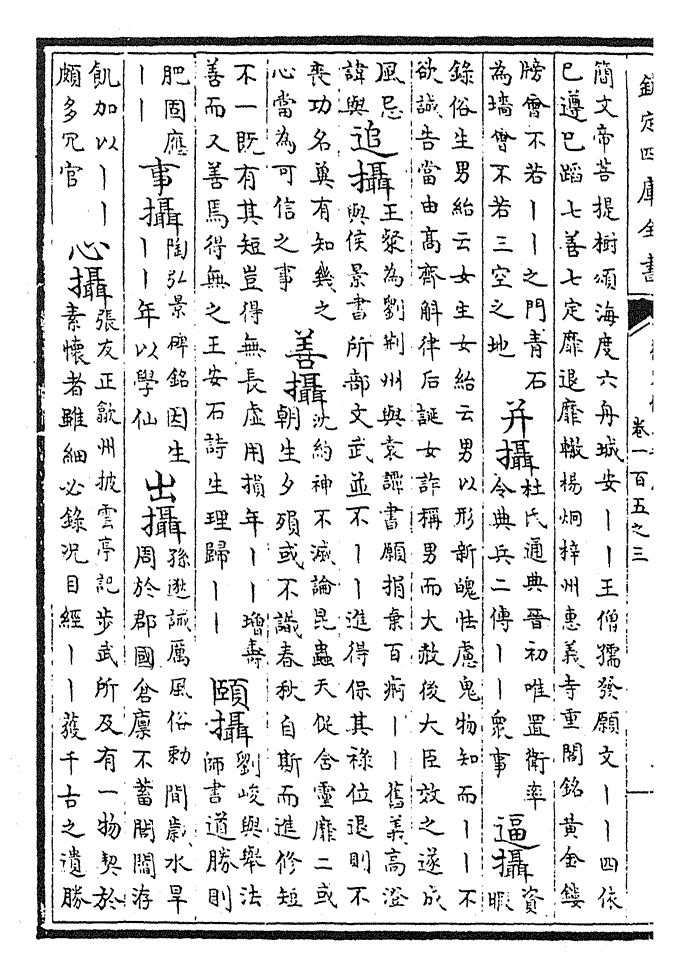 欽定四庫全書
卷一百五之三
簡文帝菩提樹頌海度六舟城安丨丨王僧孺發願文丨丨四依
已遵已蹈七善七定靡退靡轍楊炯梓州惠義寺重閣銘黃金鏤
牓會不若丨丨之門青石
為璚會不若三空之地
并攝
杜氏通典晉初唯置衛率
令典兵二傅丨丨衆事
逼攝
資
暇
錄俗生男紿云女生女紿云男以形新魄怯慮鬼物知而丨丨不
欲誠告當由高齊斛律后誕女詐稱男而大赦後大臣效之遂成
風忌
諱與
追攝
王粲為劉荆州與袁譚書願捐棄百痾丨丨舊義高澄
與侯景書所部文武並不丨丨進得保其祿位退則不
喪功名奠有知幾之
心當為可信之事
善攝
沈約神不滅論昆蟲夭促含靈靡二或
朝生夕殞或不識春秋自斯而進修短
不一既有其短豈得無長虛用損年丨丨增壽
善而又善焉得無之王安石詩生理歸丨丨
頤攝
劉峻與舉法
師書道勝則
肥固應
丨丨
事攝
陶弘景碑銘因生
丨丨年以學仙
出攝
孫逖誡厲風俗勅間歲水旱
周於郡國倉廩不蓄閭閻洊
飢加以丨丨
頗多冗官
心攝
張友正歙州披雲亭記步武所及有一物契於
素懷者雖細必錄況目經丨丨獲千古之遺勝